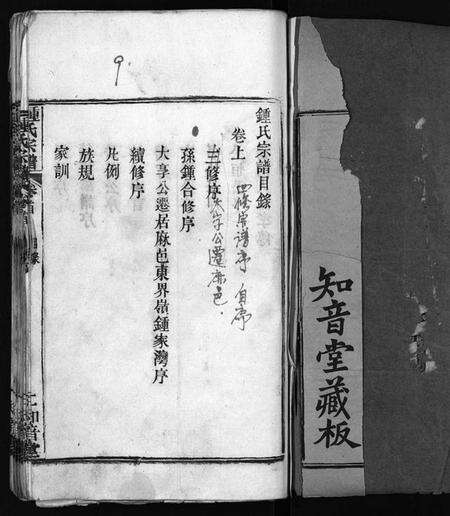 知音堂藏板
9.
鍾氏宗譜目錄
卷上 四修宗譜序 自序
三修序 大亨公遷麻邑.
孫鍾合修序
大亨公遷居麻邑東界嶺鍾家灣序
續修序
凡例
族規
家訓
鍾氏宗譜 卷首 目錄
知音堂